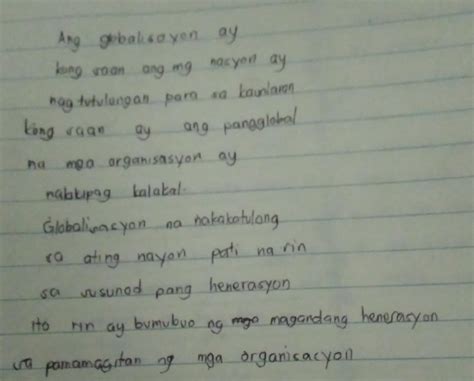 Ang globalisasyon ay
kong saan ang mg nasyon ay
nagtutulungan para sa kaunlaran
kong saan ay ang pangglobal
na mga organisasyon ay
nakikipag kalakal.
Globalisasyon na nakakatulong
sa ating nayon pati na rin
sa susunod pang henerasyon
Ito rin ay bumubuo ng magandang henerasyon
sa pamamagitan ng mga organisacyon